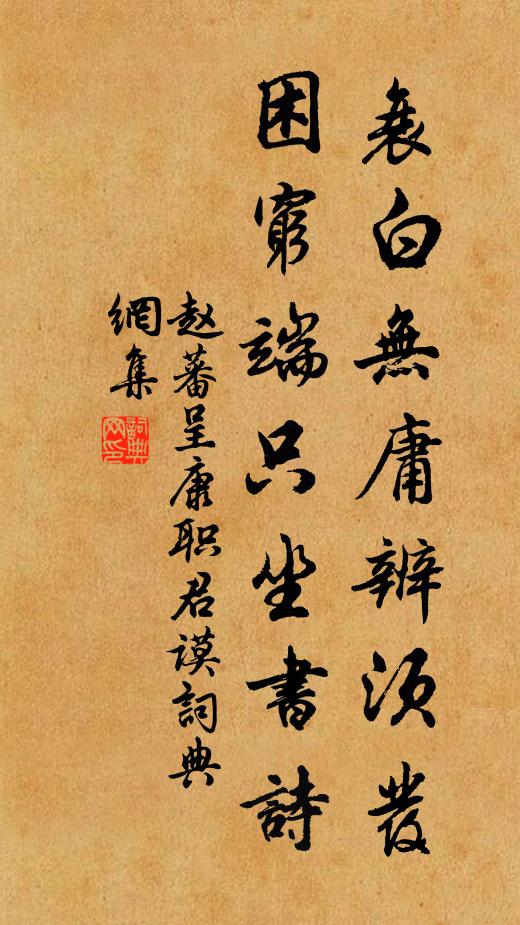 衰白無庸辨须發
困窮端只坐書詩
赵蕃呈康职君謨詞典
網集
詞典網印